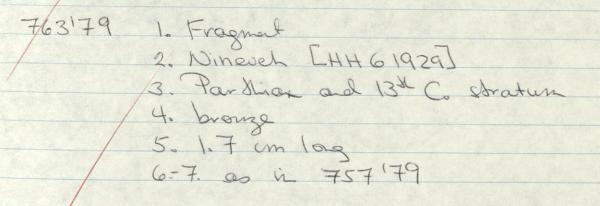 763'79 1. Fragment
2. Nineveh [HH G 1929]
3. Parthian and 13th C. stratum
4. bronze
5. 1.7 cm long
6-7. as in 757'79